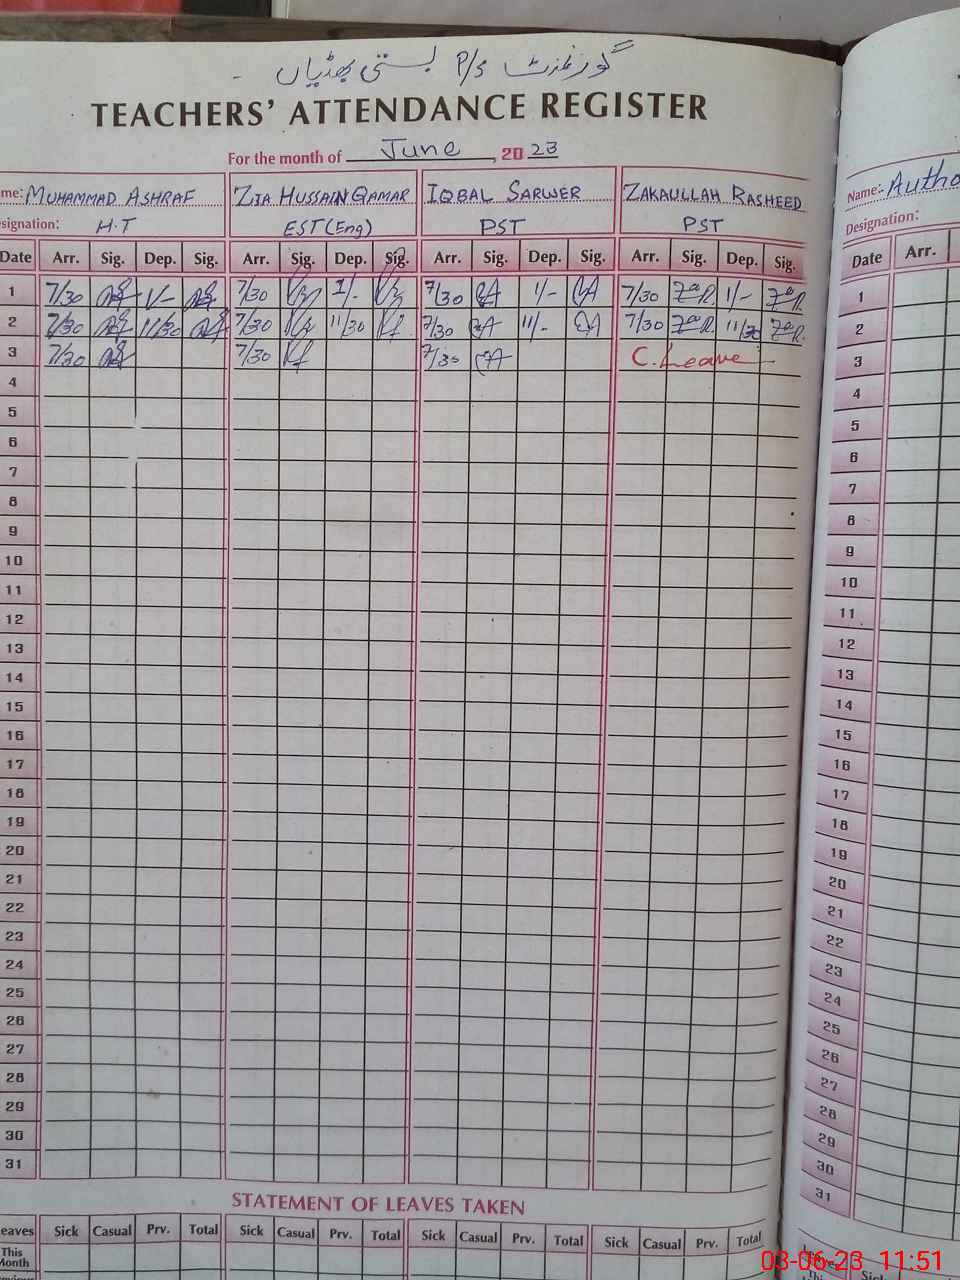 گورنمنٹ P/S بستی بھڈیاں
TEACHERS' ATTENDANCE REGISTER
For the month of June, 20 23
me: MUHAMMAD ASHRAF ZIA HUSSAIN QAMAR IQBAL SARWER ZAKAULLAH RASHEED
signation: H.T EST (Eng) PST PST
Date Arr. Sig. Dep. Sig. Arr. Sig. Dep. Sig. Arr. Sig. Dep. Sig. Arr. Sig. Dep. Sig.
1 7/30 1/- 7/30 1/- 7/30 1/- 7/30 1/-
2 7/30 11/30 7/30 11/30 7/30 11/- 7/30 11/30
3 7/30 7/30 7/30 C. Leave
4
5
6
7
8
9
10
11
12
13
14
15
16
17
18
19
20
21
22
23
24
25
26
27
28
29
30
31
STATEMENT OF LEAVES TAKEN
eaves Sick Casual Prv. Total Sick Casual Prv. Total Sick Casual Prv. Total Sick Casual Prv. Total
This
Month
Name:- Autho
Designation:
Date Arr.
1
2
3
4
5
6
7
8
9
10
11
12
13
14
15
16
17
18
19
20
21
22
23
24
25
26
27
28
29
30
31
03-06-23 11:51